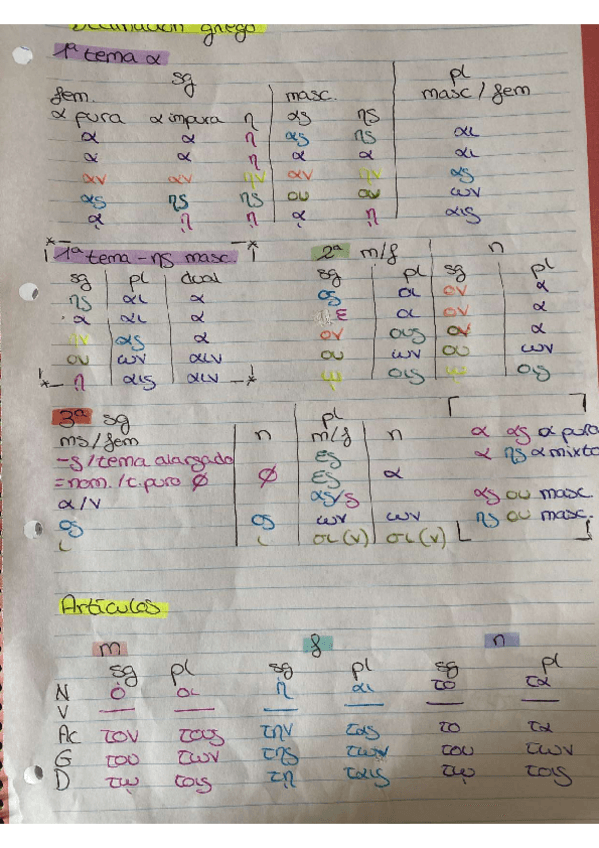 Declinación griego
1ª tema α
sg pl
fem. masc. masc / fem
α pura α impura η ας ης
α α η ας ης αι
α α η α α αι
αν αν ην αν ην ας
ας ης ης ου ου ων
ᾳ ῃ ῃ ᾳ ῃ αις
1ª tema - ης masc 2ª m/f n
sg pl dual sg pl sg pl
ης αι α ος οι ον α
α αι α ε οι ον α
ην ας α ον ους ον α
ου ων αιν ου ων ου ων
ῃ αις αιν ῳ οις ῳ οις
3ª sg pl
ms/fem n m/f n α ας α pura
-s/tema alargado ες α ης α mixta
=nom./t. puro ∅ ∅ ες α
α/ν ας/ς ας ου masc
ος ος ων ων ης ου masc.
ι ι σι(ν) σι(ν)
Artículos
m f n
sg pl sg pl sg pl
N ὁ οι ἡ αι το τα
V — — — — — —
Ac τον τους την τας το τα
G του των της των του των
D τῳ τοις τῃ ταις τῳ τοις